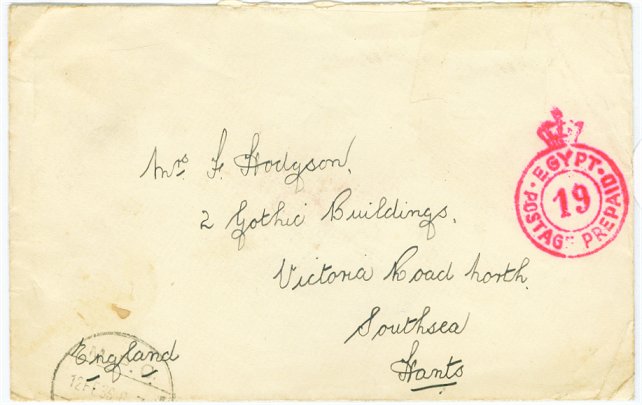 Mrs F. Hodgson.
2 Gothic Buildings.
Victoria Road North.
Southsea
Hants
England
EGYPT
POSTAGE PREPAID
19